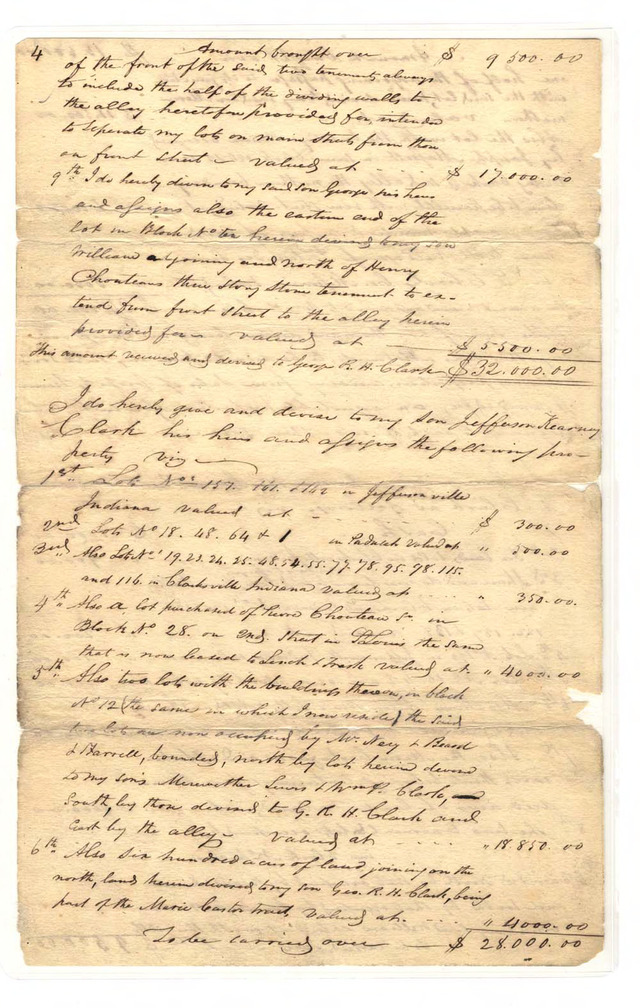 4 Amount brought over $ 9500.00
of the front of the said two tenements always
to include the half of the dividing walls to
the alley heretofore provided for, intended
to seperate my lots on main street from those
on front street - valued at $ 17.000.00
9th I do hereby devise to my said son George his heirs
and assigns also the eastern end of the
lot in Block No ten herein devised to my son
William adjoining and north of Henry
Chouteaus three story stone tenement to ex-
tend from front street to the alley herein
provided for - valued at $ 5500.00
This amount valued and devised to George R. H. Clark $ 32.000.00
I do hereby give and devise to my son Jefferson Kearney
Clark his heirs and assigns the following pro-
perty viz
1st Lots Nos 157. 161. & 162 in Jeffersonville
Indiana valued at $ 300.00
2nd Lots No 18. 48. 64 & 1 in Paducah valued at " 500.00
3rd Also Lots Nos 19. 23. 24. 25. 48. 54. 55. 77. 78. 95. 98. 115.
and 116. in Clarksville Indiana valued at " 350.00.
4th Also a lot purchased of Chouteau Sr in
Block No 28. on 2nd. Street in St Louis the same
that is now leased to Lynch & Trask valued at " 4000.00
5th Also two lots with the buildings thereon, in block
No 12 (the same in which I now reside) the said
two lots are now occupied by Mr. Ney &
& Harrell, bounded, north by lots herein devised
to my son's Meriwether Lewis & Wm P. Clark,
South, by those devised to G. R. H. Clark and
East by the alley - valued at " 18.850.00
6th Also six hundred acres of land joining on the
north, land herein devised to my son Geo. R. H. Clark, being
part of the Marie Castor tract, valued at " 4000.00
To be carried over $ 28.000.00